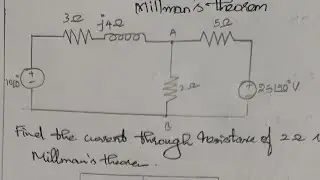 Millman's theorem
3Ω j4Ω A 5Ω
2Ω
25∠90°V
B
Find the current through resistance of 2Ω
Millman's theorem.